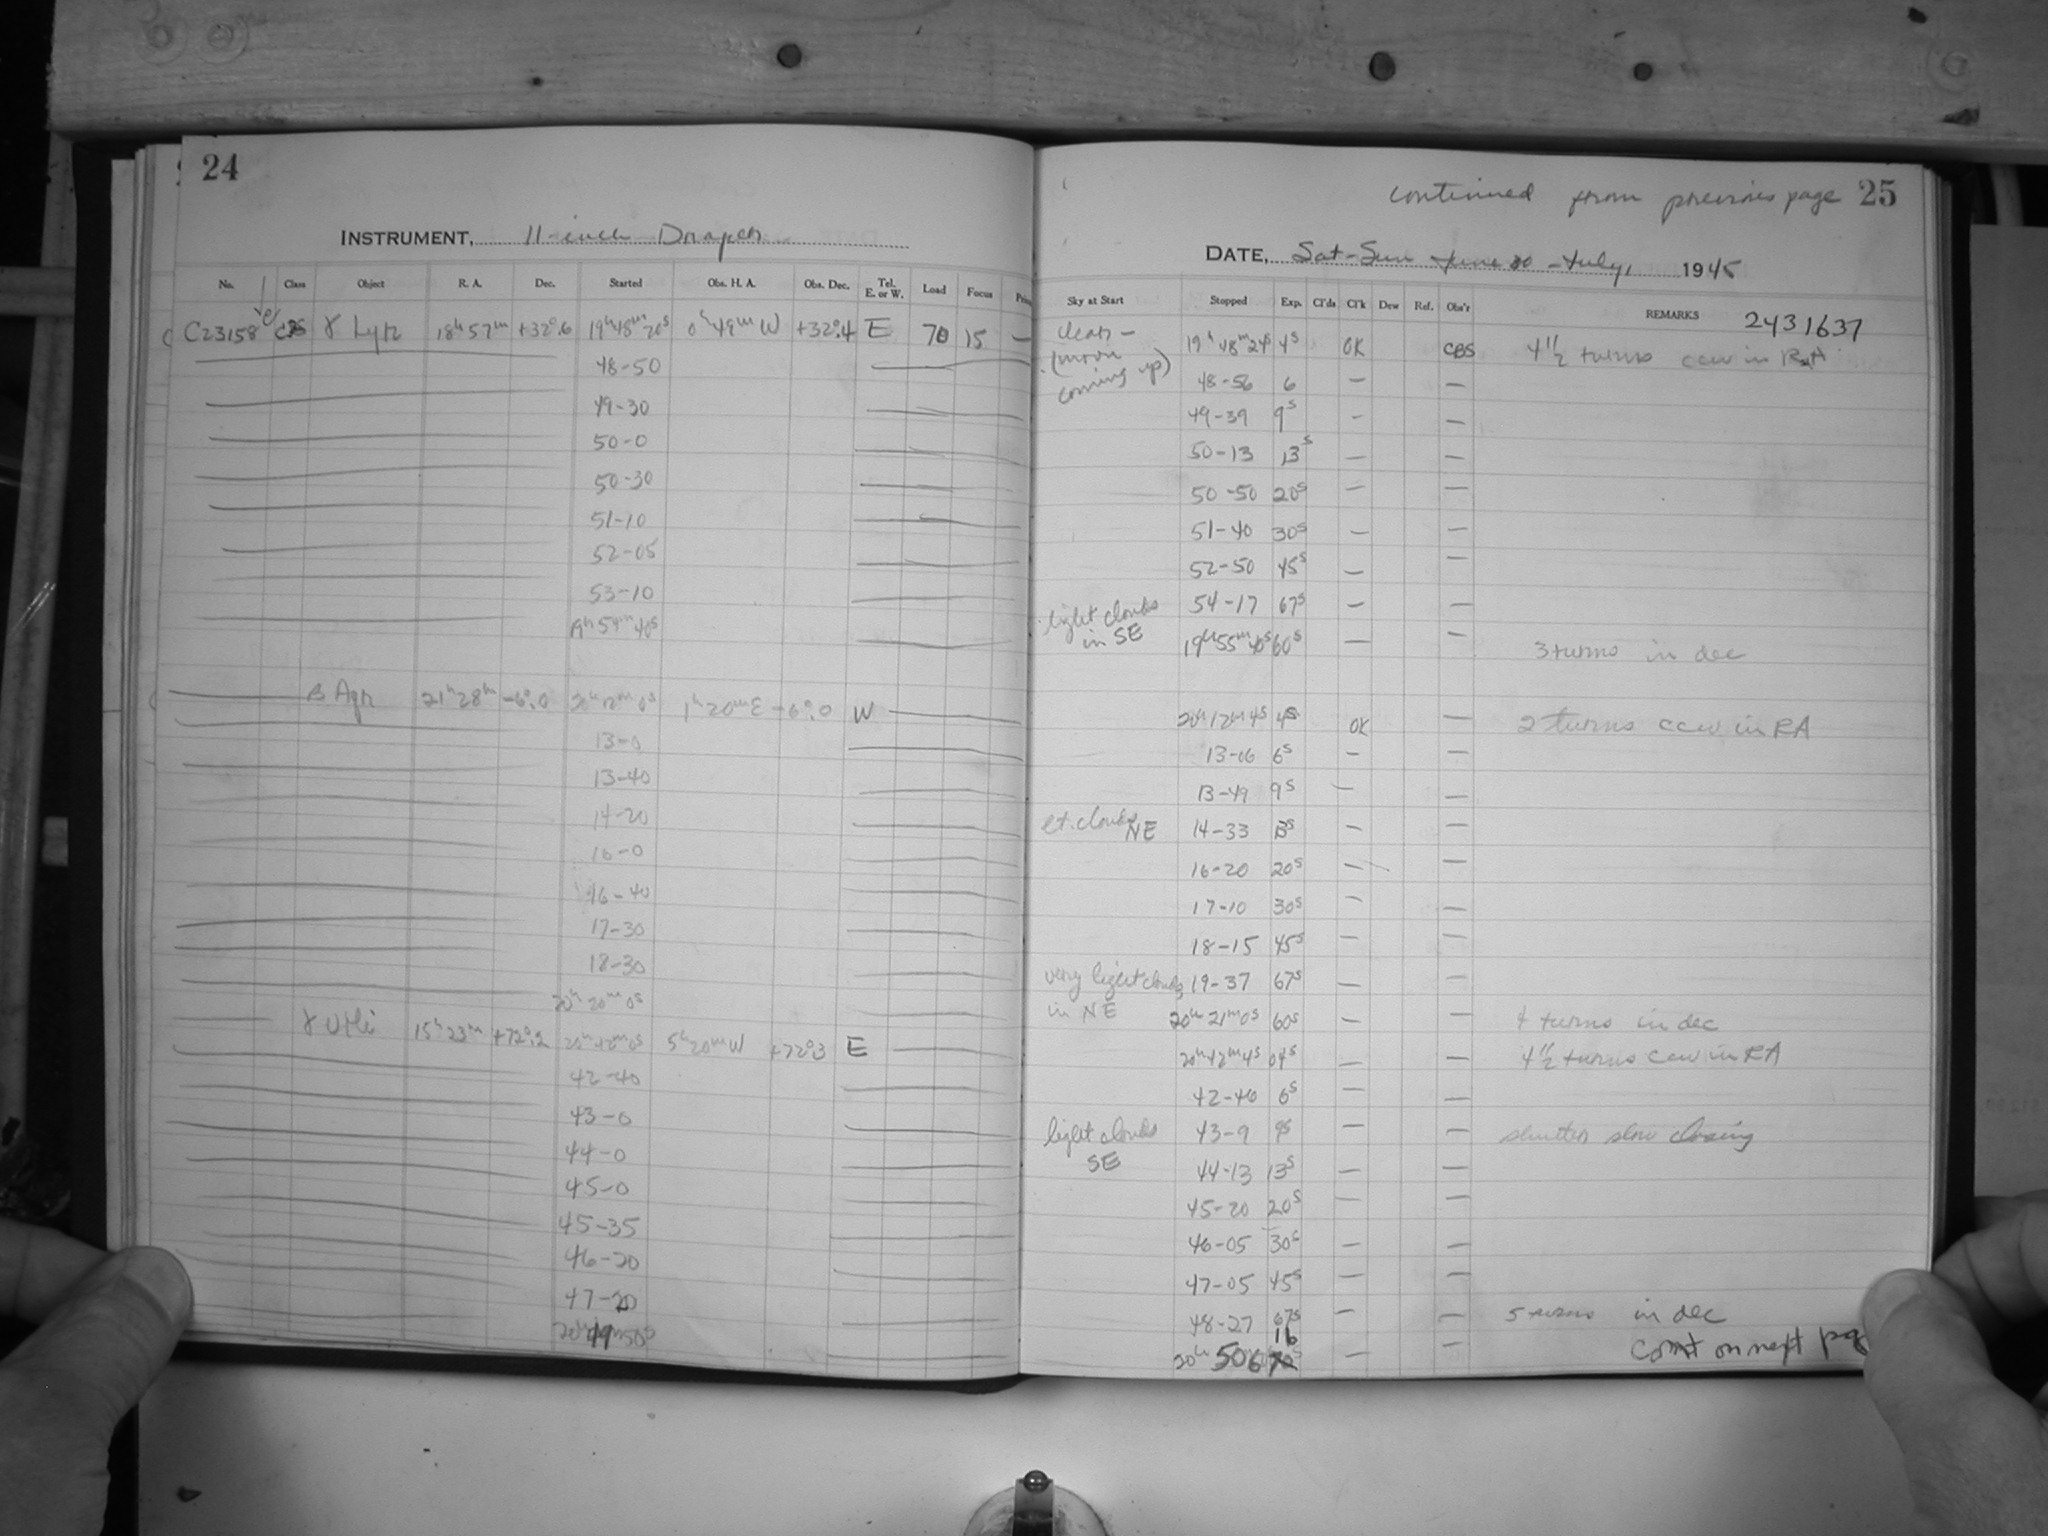 24
INSTRUMENT, 11-inch Draper
No. Class Object R. A. Dec. Started Obs. H. A. Obs. Dec. Tel. E. or W. Load Focus
C23158 γ Lyr 18h 57m +32°.6 19h 48m 20s 0h 49m W +32°.4 E 70 15 —
48-50
49-30
50-0
50-30
51-10
52-05
53-10
19h 54m 40s
β Aqr 21h 28m -6°.0 20h 12m 0s 1h 20m E -6°.0 W
13-0
13-40
14-20
16-0
16-40
17-30
18-30
20h 20m 0s
γ UMi 15h 23m +72°.2 20h 42m 0s 5h 20m W +72°.3 E
42-40
43-0
44-0
45-0
45-35
46-20
47-20
49
continued from previous page 25
DATE, Sat-Sun June 30 - July 1 1945
Sky at Start Stopped Exp. Cl'ds Cl'k Dew Ref. Obs'r REMARKS 2431637
clear - 19h 48m 24s 4s OK CBS 4 1/2 turns ccw in RA
(moon
coming up) 48-56 6 — —
49-39 9s — —
50-13 13s — —
50-50 20s — —
51-40 30s — —
52-50 45s — —
light clouds 54-17 67s — —
in SE 19h 55m 40s 60s — — 3 turns in dec
20h 12m 4s 4s OK — 2 turns ccw in RA
13-06 6s — —
13-49 9s — —
lt. clouds NE 14-33 13s — —
16-20 20s — —
17-10 30s — —
18-15 45s — —
very light clouds 19-37 67s — —
in NE 20h 21m 0s 60s — — 4 turns in dec
20h 42m 4s 04s — — 4 1/2 turns ccw in RA
42-46 6s — —
light clouds 43-9 9s — — shutter slow closing
SE 44-13 13s — —
45-20 20s — —
46-05 30s — —
47-05 45s — —
48-27 67s — — 5 turns in dec
20h 506 16 — — cont on next pg